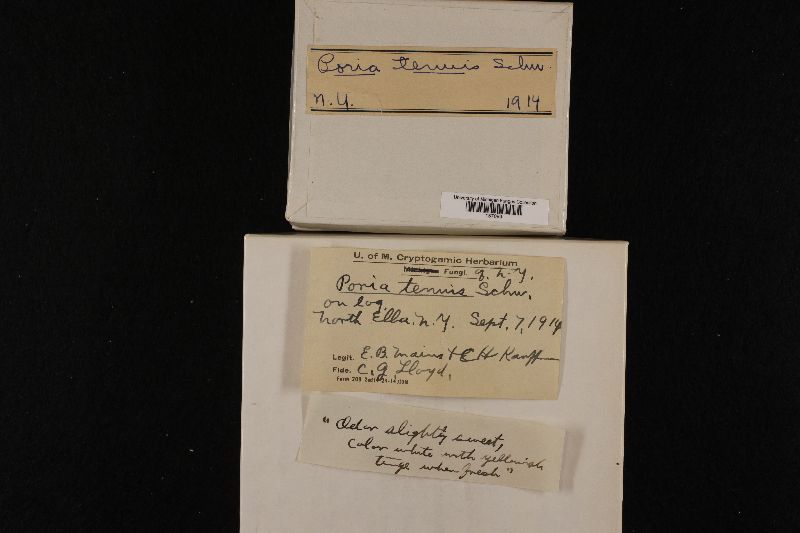 Poria tenuis Schw.
N.Y. 1914
University of Michigan Fungus Collection
U. of M. Cryptogamic Herbarium
Fungi. of N.Y.
Poria tenuis Schw.
on log.
North Elba. N.Y. Sept. 7, 1914
Legit. E.B. Mains + C H Kauffman
Fide. C. G. Lloyd.
Form 209
"Odor slightly sweet,
color white with yellowish
tinge when fresh"